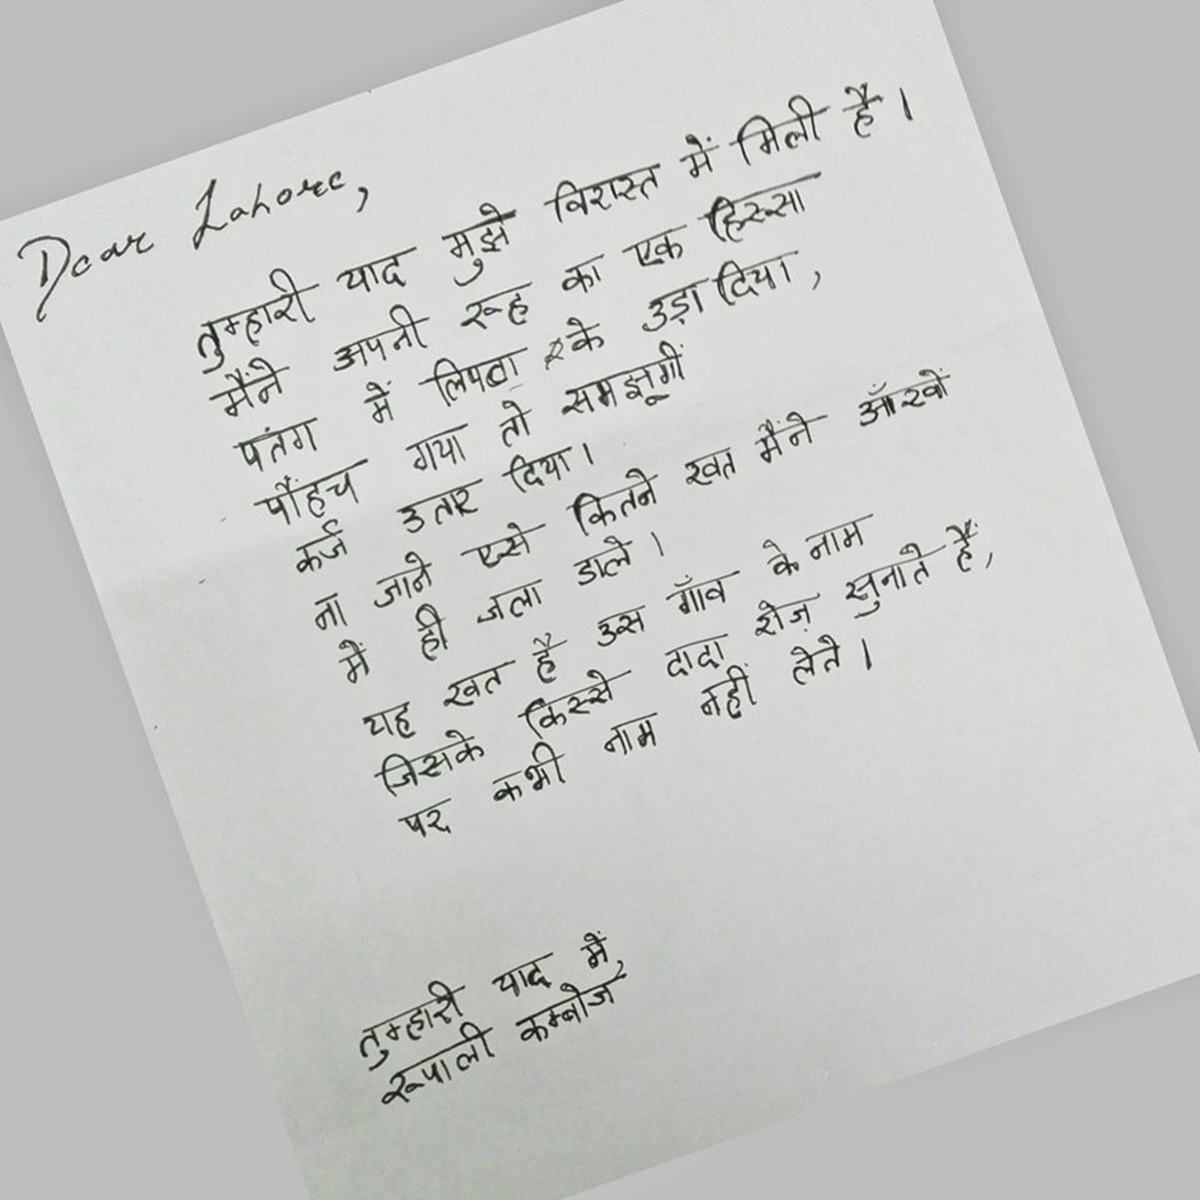 Dear Lahore,
तुम्हारी याद मुझे विरास्त में मिली है।
मैंने अपनी रूह का एक हिस्सा
पतंग में लिपटा के उड़ा दिया,
पौंहच गया तो समझूगीं
कर्ज उतार दिया।
ना जाने एसे कितने खत मैंने आँखों
में ही जला डाले।
यह खत है उस गाँव के नाम
जिसके किस्से दादा रोज़ सुनाते हैं,
पर कभी नाम नहीं लेते।
तुम्हारी याद में,
रूपाली कम्बोज